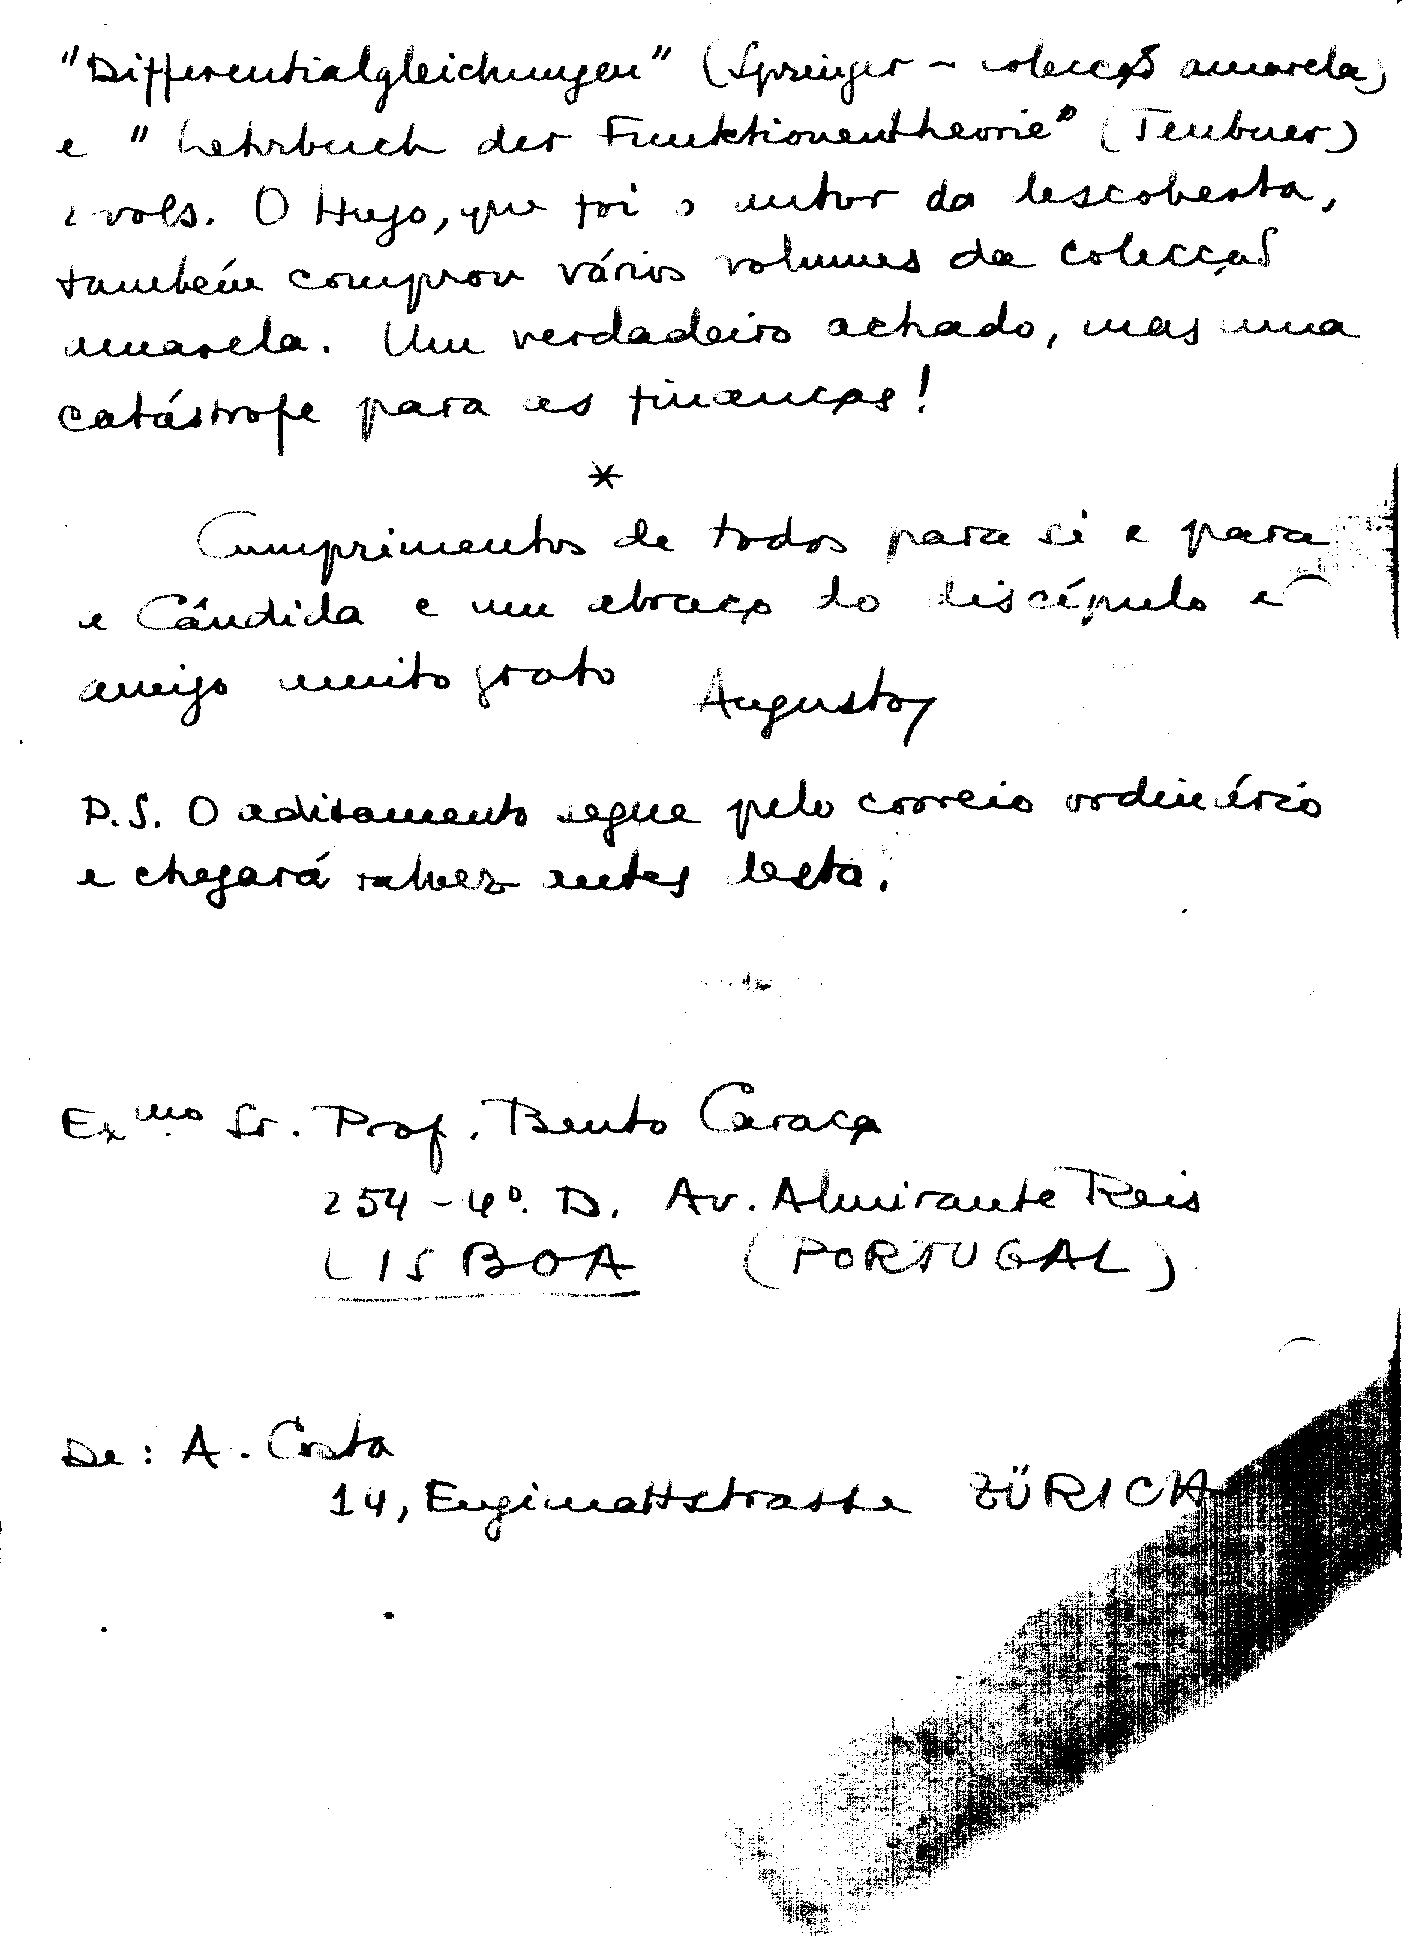 "Differentialgleichungen" (Springer - colecção amarela)
e "Lehrbuch der Funktionentheorie" (Teubner)
2 vols. O Hugo, que foi o autor da descoberta,
também comprou vários volumes da colecção
amarela. Um verdadeiro achado, mas uma
catástrofe para as finanças!
*
Cumprimentos de todos para si e para
a Cândida e um abraço do discípulo e
amigo muito grato Augusto
P.S. O aditamento segue pelo correio ordinário
e chegará talvez antes desta.
Ex.mo Sr. Prof. Bento Caraça
254 - 4º. D. Av. Almirante Reis
LISBOA (PORTUGAL)
De: A. Costa
14, Engimattstrasse ZÜRICH